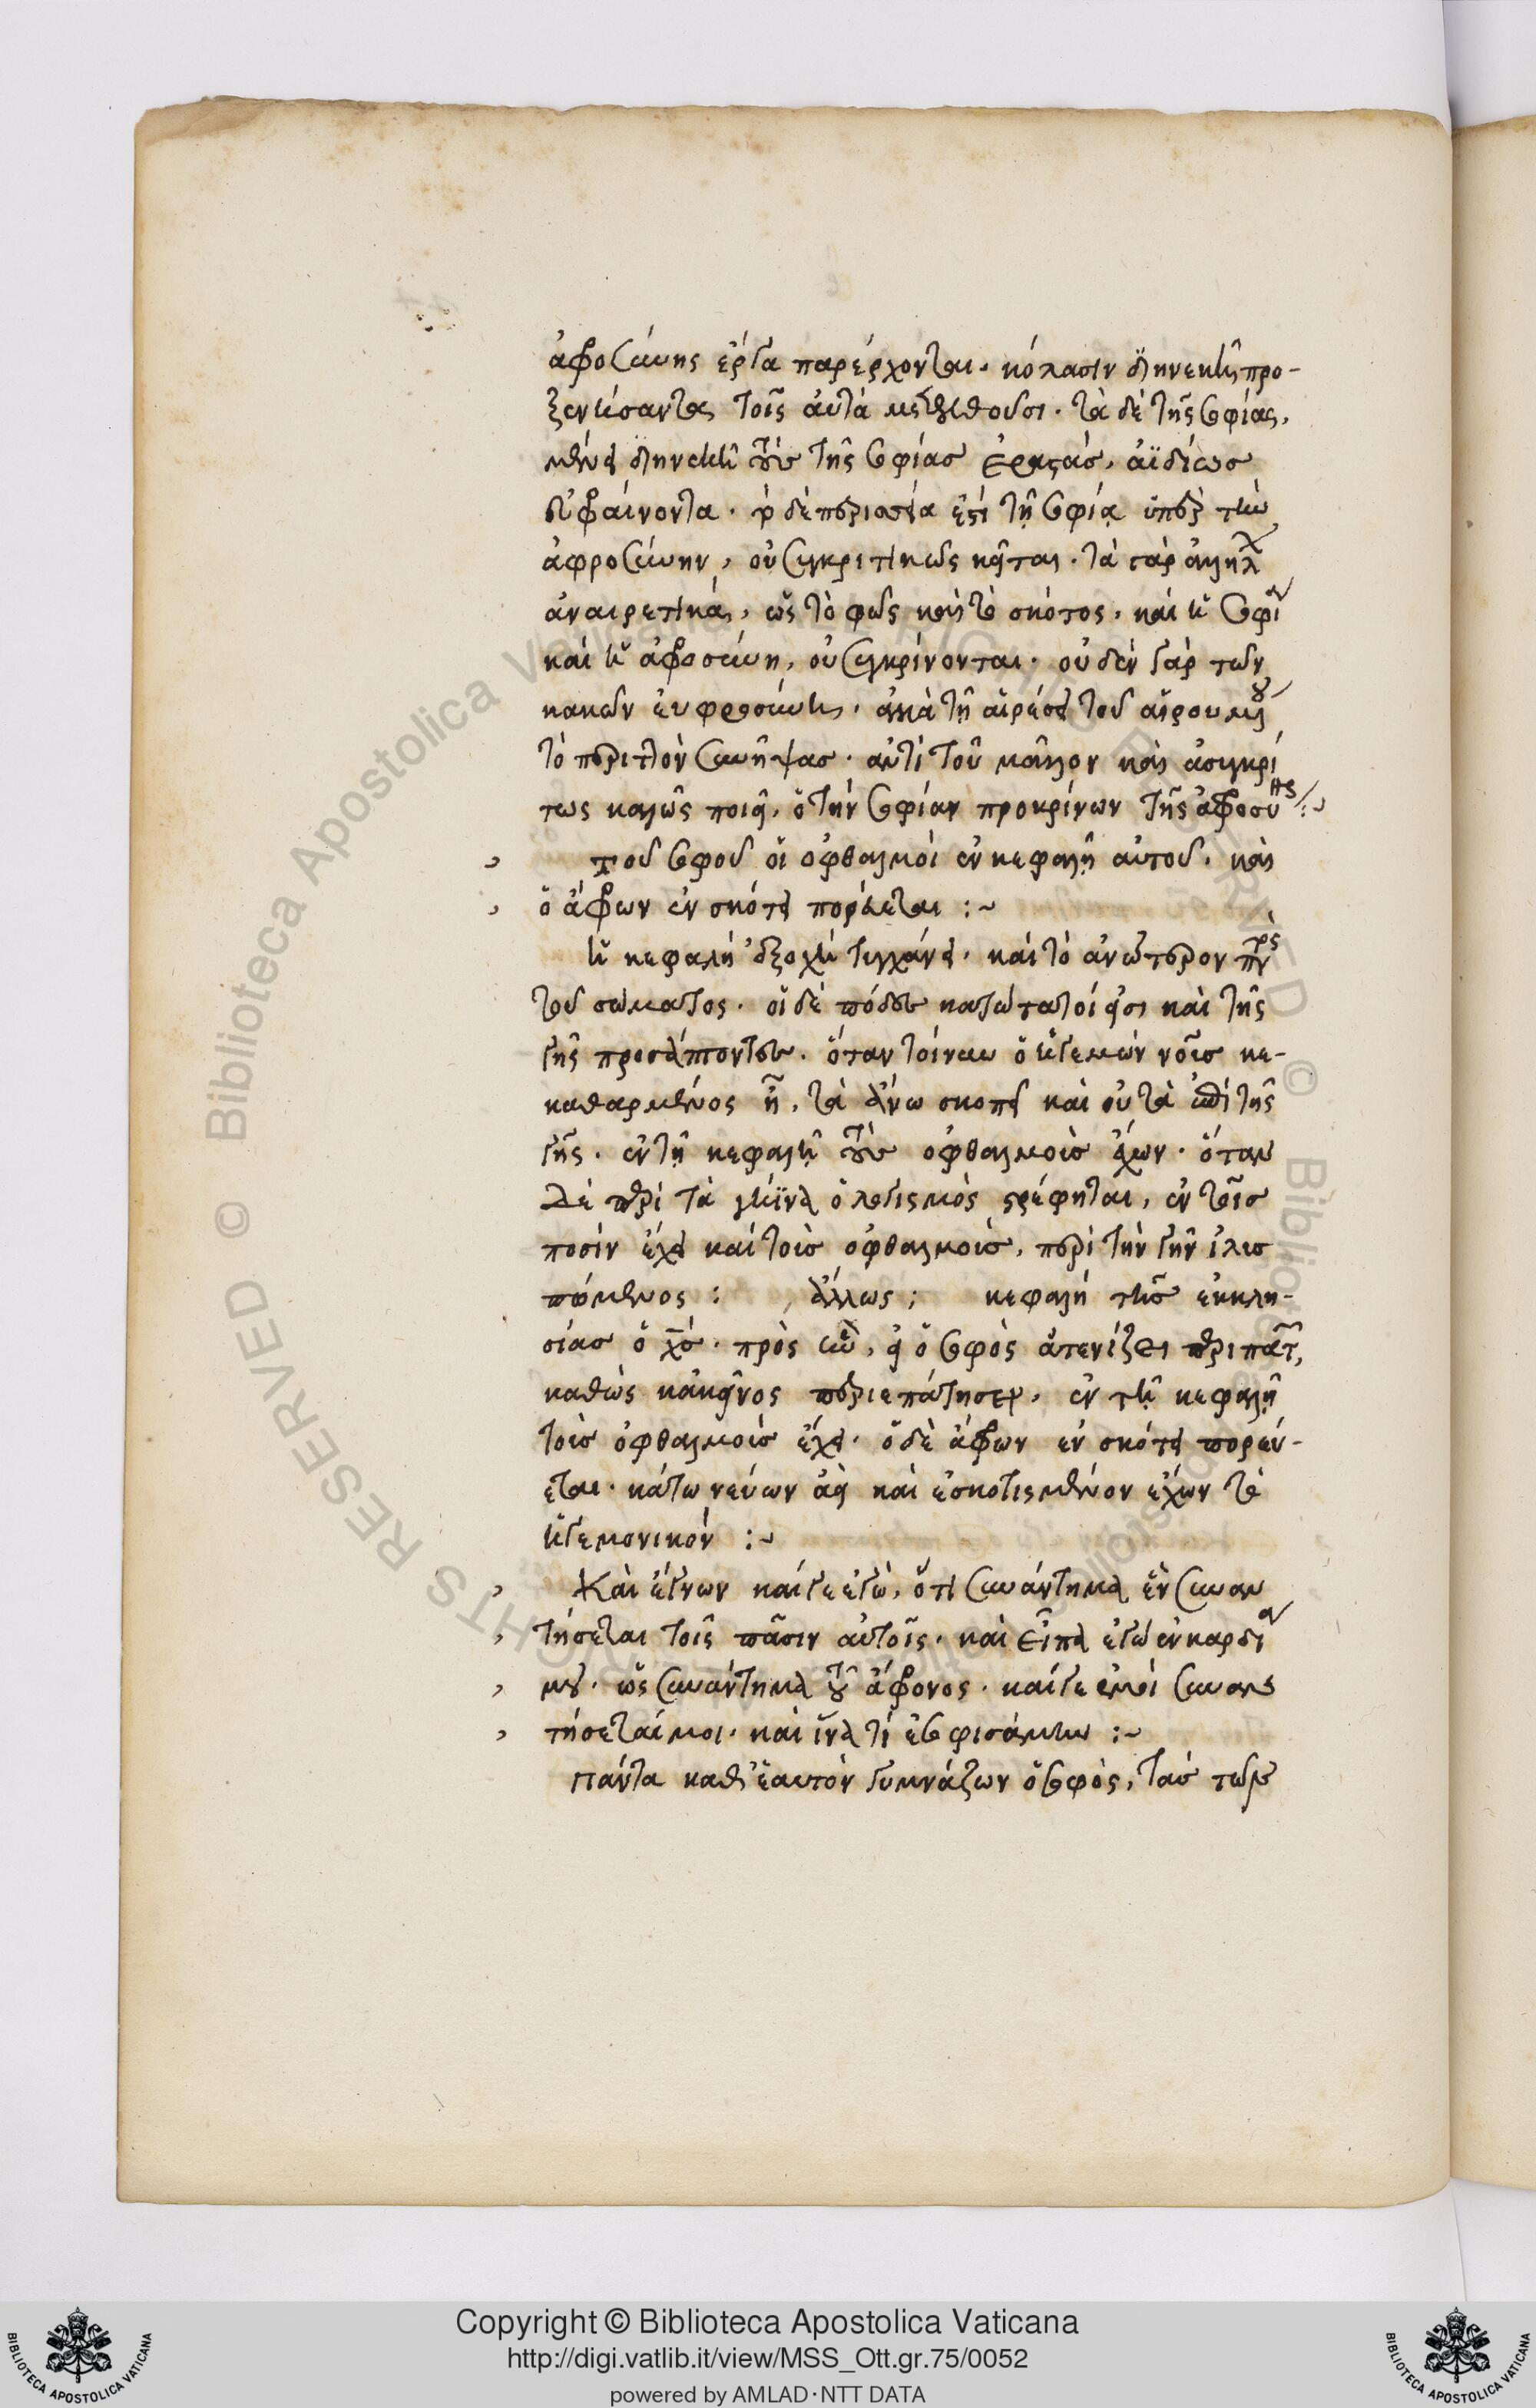 ἀφροσύνης ἔργα παρέρχονται. κόλασιν διηνεκῆ προ-
ξενήσαντα, τοῖς αὐτὰ μετελθοῦσι. τὰ δὲ τῆς σοφίας,
μένει διηνεκῆ τοὺς τῆς σοφίας ἐραστάς, ἀϊδίως
εὐφραίνοντα. τὸ δὲ περισσεία ἐστὶ τῇ σοφίᾳ ὑπὲρ τὴν
ἀφροσύνην, οὐ συγκριτικῶς κεῖται. τὰ γὰρ ἀλλήλ
ἀναιρετικά, ὡς τὸ φῶς καὶ τὸ σκότος, καὶ ἡ σοφία
καὶ ἡ ἀφροσύνη, οὐ συγκρίνονται. οὐδὲν γὰρ τῶν
κακῶν εὐφροσύνη. ἀλλὰ τῇ αἱρέσει τοῦ αἱρουμένου
τὸ περιττὸν συνῆψας. ἀντὶ τοῦ μᾶλλον καὶ ἀσυγκρί
τως καλῶς ποιεῖ, ὁ τὴν σοφίαν προκρίνων τῆς ἀφροσύνης :~
τοῦ σοφοῦ οἱ ὀφθαλμοὶ ἐν κεφαλῇ αὐτοῦ. καὶ
ὁ ἄφρων ἐν σκότει πορεύεται :~
ἡ κεφαλὴ ἐξοχὴ τυγχάνει. καὶ τὸ ἀνώτερον μέρος
τοῦ σώματος. οἱ δὲ πόδες κατώτατοί εἰσι καὶ τῆς
γῆς προσάπτοντες. ὅταν τοίνυν ὁ ἡγεμὼν νοῦς κε-
καθαρμένος ᾖ, τὰ ἄνω σκοπεῖ καὶ οὐ τὰ ἐπὶ τῆς
γῆς. ἐν τῇ κεφαλῇ τοὺς ὀφθαλμοὺς ἔχων. ὅταν
δὲ περὶ τὰ γήϊνα ὁ λογισμὸς στρέφηται, ἐν τοῖς
ποσὶν ἔχει καὶ τοὺς ὀφθαλμούς, περὶ τὴν γῆν ἰλυσ
πώμενος : ἄλλως ; κεφαλὴ τῆς ἐκκλη-
σίας ὁ χς. πρὸς ὃν, εἰ ὁ σοφὸς ἀτενίζει περιπατῶν,
καθὼς κἀκεῖνος περιεπάτησεν, ἐν τῇ κεφαλῇ
τοὺς ὀφθαλμοὺς ἔχει. ὁ δὲ ἄφρων ἐν σκότει πορεύ-
εται. κάτω νεύων ἀεὶ καὶ ἐσκοτισμένον ἔχων τὸ
ἡγεμονικόν :~
Καὶ ἔγνων καίγε ἐγὼ, ὅτι συνάντημα ἓν συναν
τήσεται τοῖς πᾶσιν αὐτοῖς. καὶ εἶπα ἐγὼ ἐν καρδίᾳ
μου. ὡς συνάντημα τοῦ ἄφρονος. καίγε ἐμοὶ συναν
τήσεταί μοι. καὶ ἵνα τί ἐσοφισάμην :~
Πάντα καθ' ἑαυτὸν γυμνάζων ὁ σοφὸς, τὰς τῶν
Copyright © Biblioteca Apostolica Vaticana
http://digi.vatlib.it/view/MSS_Ott.gr.75/0052
powered by AMLAD·NTT DATA